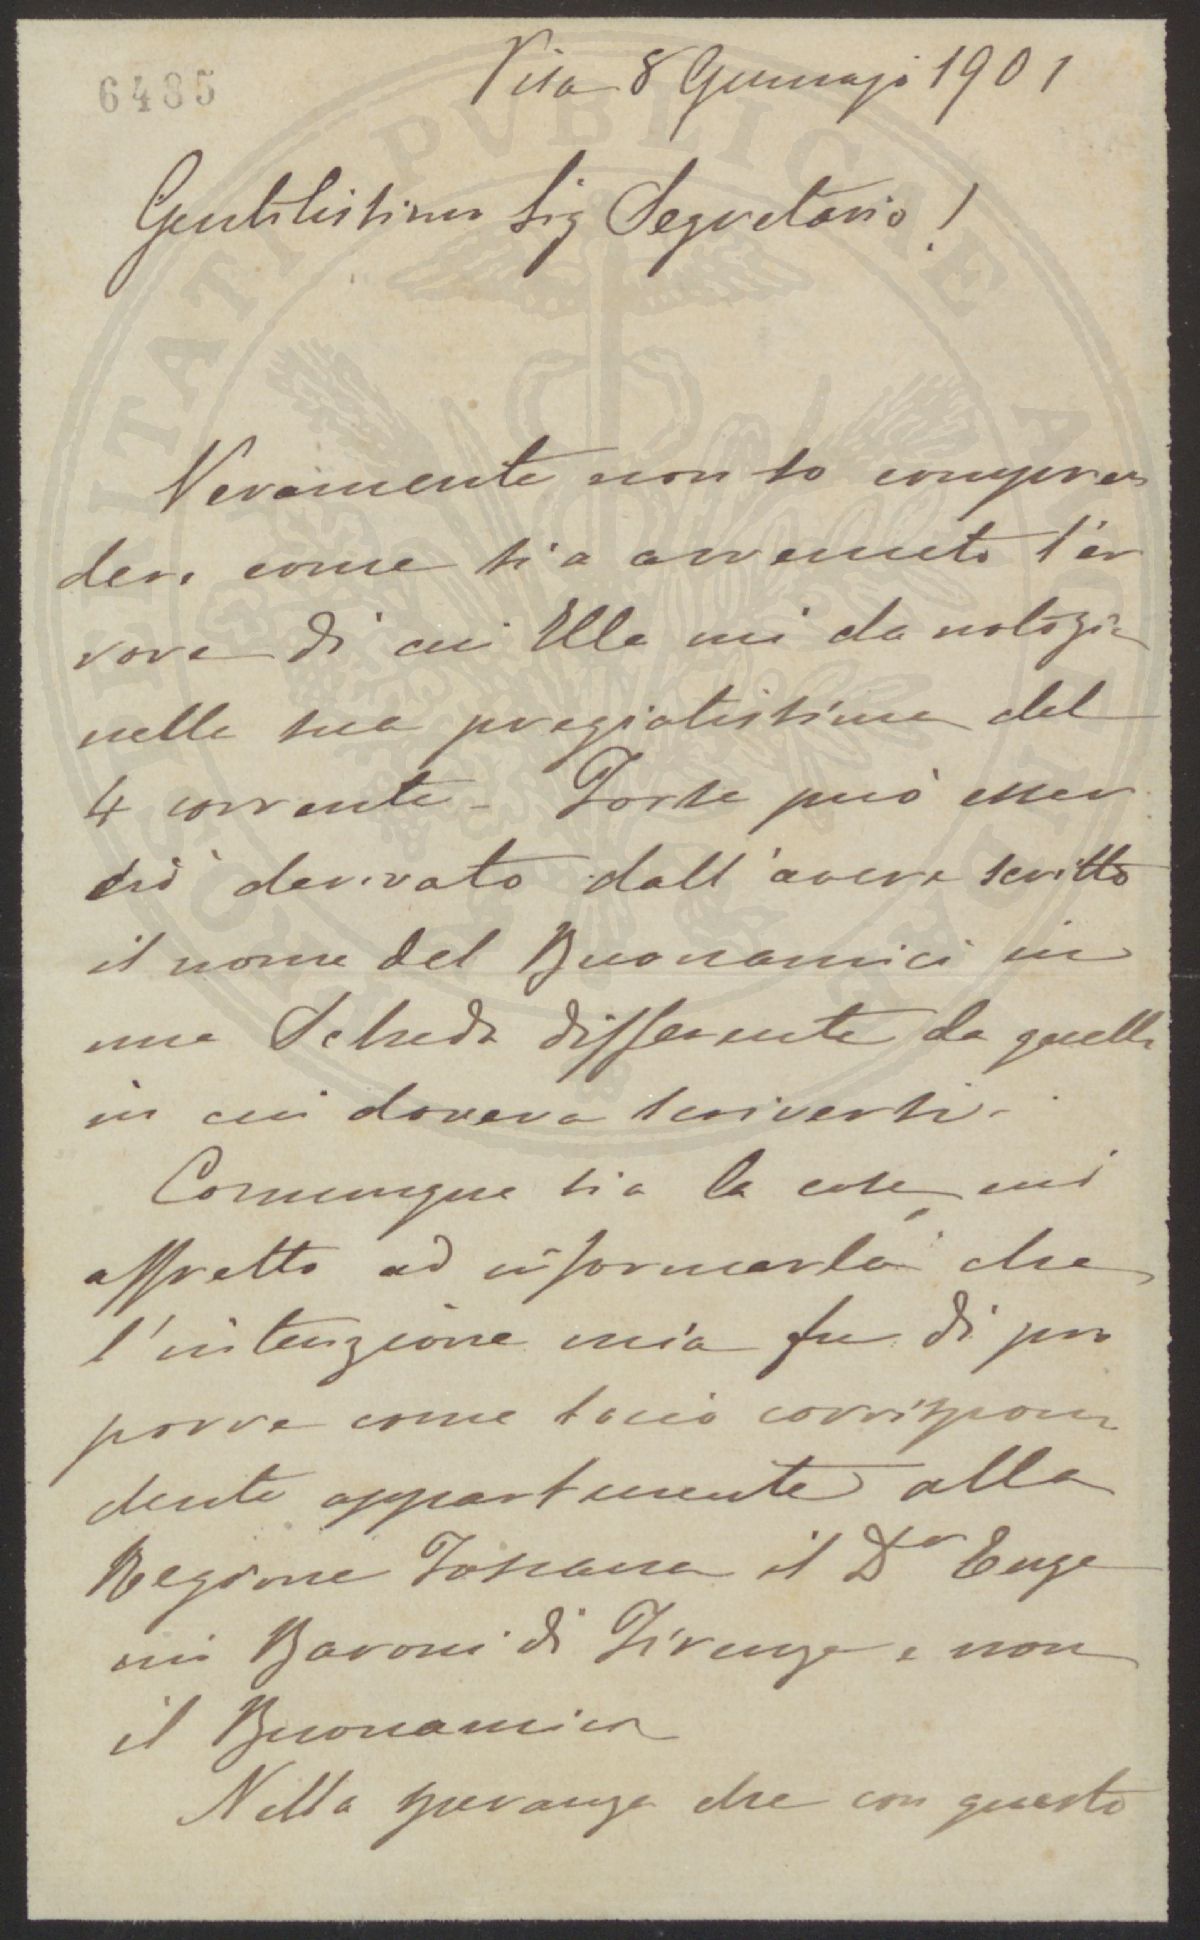 6485
Pisa 8 Gennajo 1901
Gentilissimo Sig Segretario!
Veramente non so compren
dere come sia avvenuto l'er
rore di cui Ella mi da notizia
nella sua pregiatissima del
4 corrente - Forse può esser
ciò derivato dall'avere scritto
il nome del Buonamici in
una Scheda differente da quella
in cui doveva scriversi.
Comunque sia la cosa mi
affretto ad informarla che
l'intenzione mia fu di pro
porre come socio corrispon
dente appartenente alla
Regione Toscana il Dr Euge
nio Baroni di Firenze e non
il Buonamici
Nella speranza che con questo